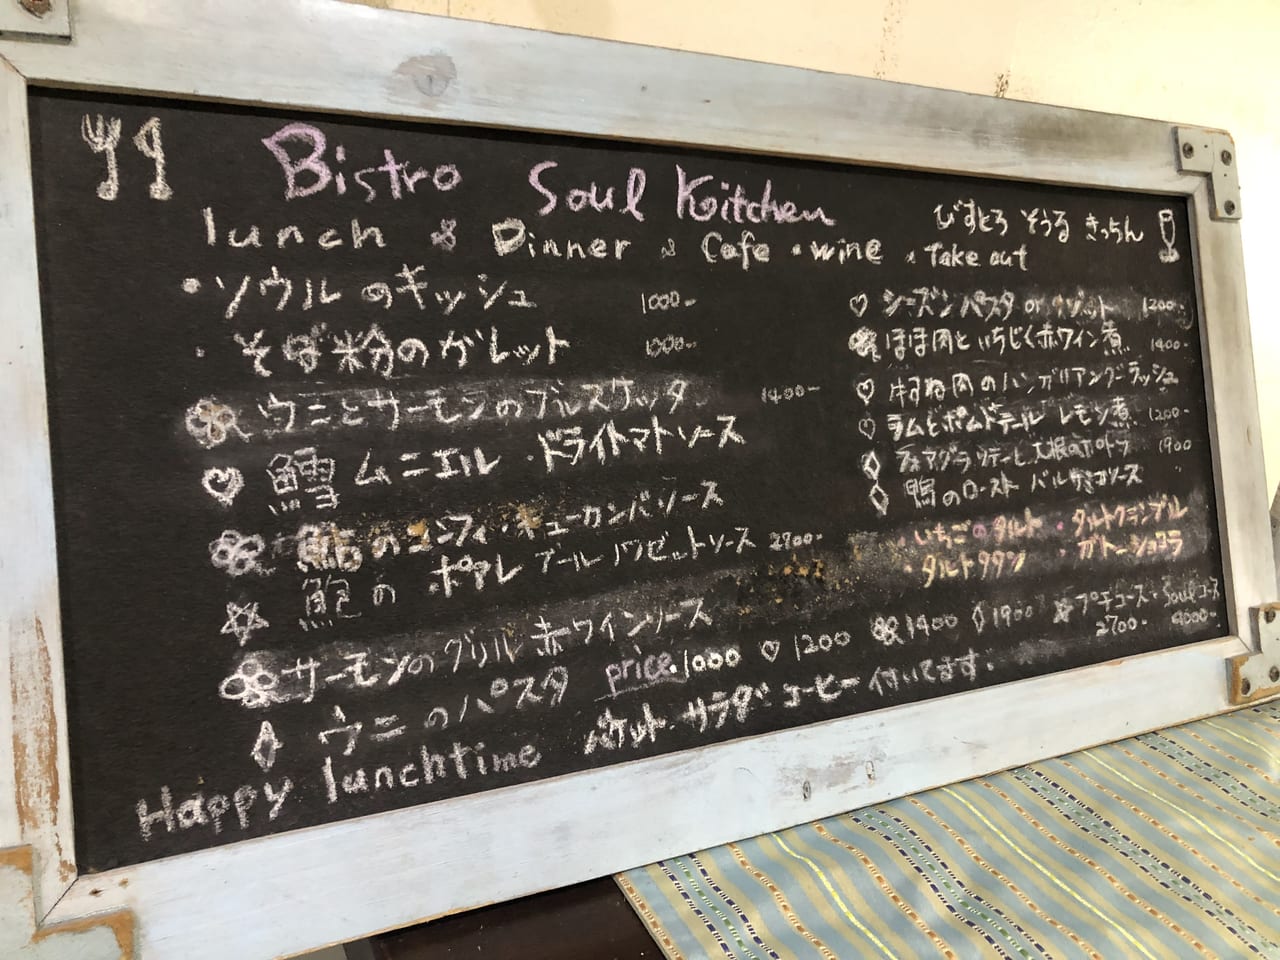 Bistro Soul Kitchen
びすとろ そうる きっちん
lunch & Dinner & Cafe・wine・Take out
・ソウルのキッシュ 1000-
・そば粉のガレット 1000-
ウニとサーモンのブルスケッタ 1400-
♡ 鱈ムニエル・ドライトマトソース
のコンフィ・キューカンバソース
☆ 鮑の ポアレ ブールノワゼットソース 2700-
サーモンのグリル 赤ワインソース
◇ ウニのパスタ
♡ シーズンパスタ or リゾット 1200-
ほほ肉といちじく赤ワイン煮 1400-
♡ 牛すね肉のハンガリアングーラッシュ
♡ ラムとポムドテール レモン煮 1200-
◇ フォアグラソテーと大根のポトフ 1900
◇ 鴨のロースト バルサミコソース
・いちごのタルト ・タルトクランブル
・タルトタタン ・ガトーショコラ
price 1000 ♡1200 1400 ◇1900 ☆プチコース・Soulコース
2700- 4000-
Happy lunchtime バケット サラダ コーヒー 付いてます。